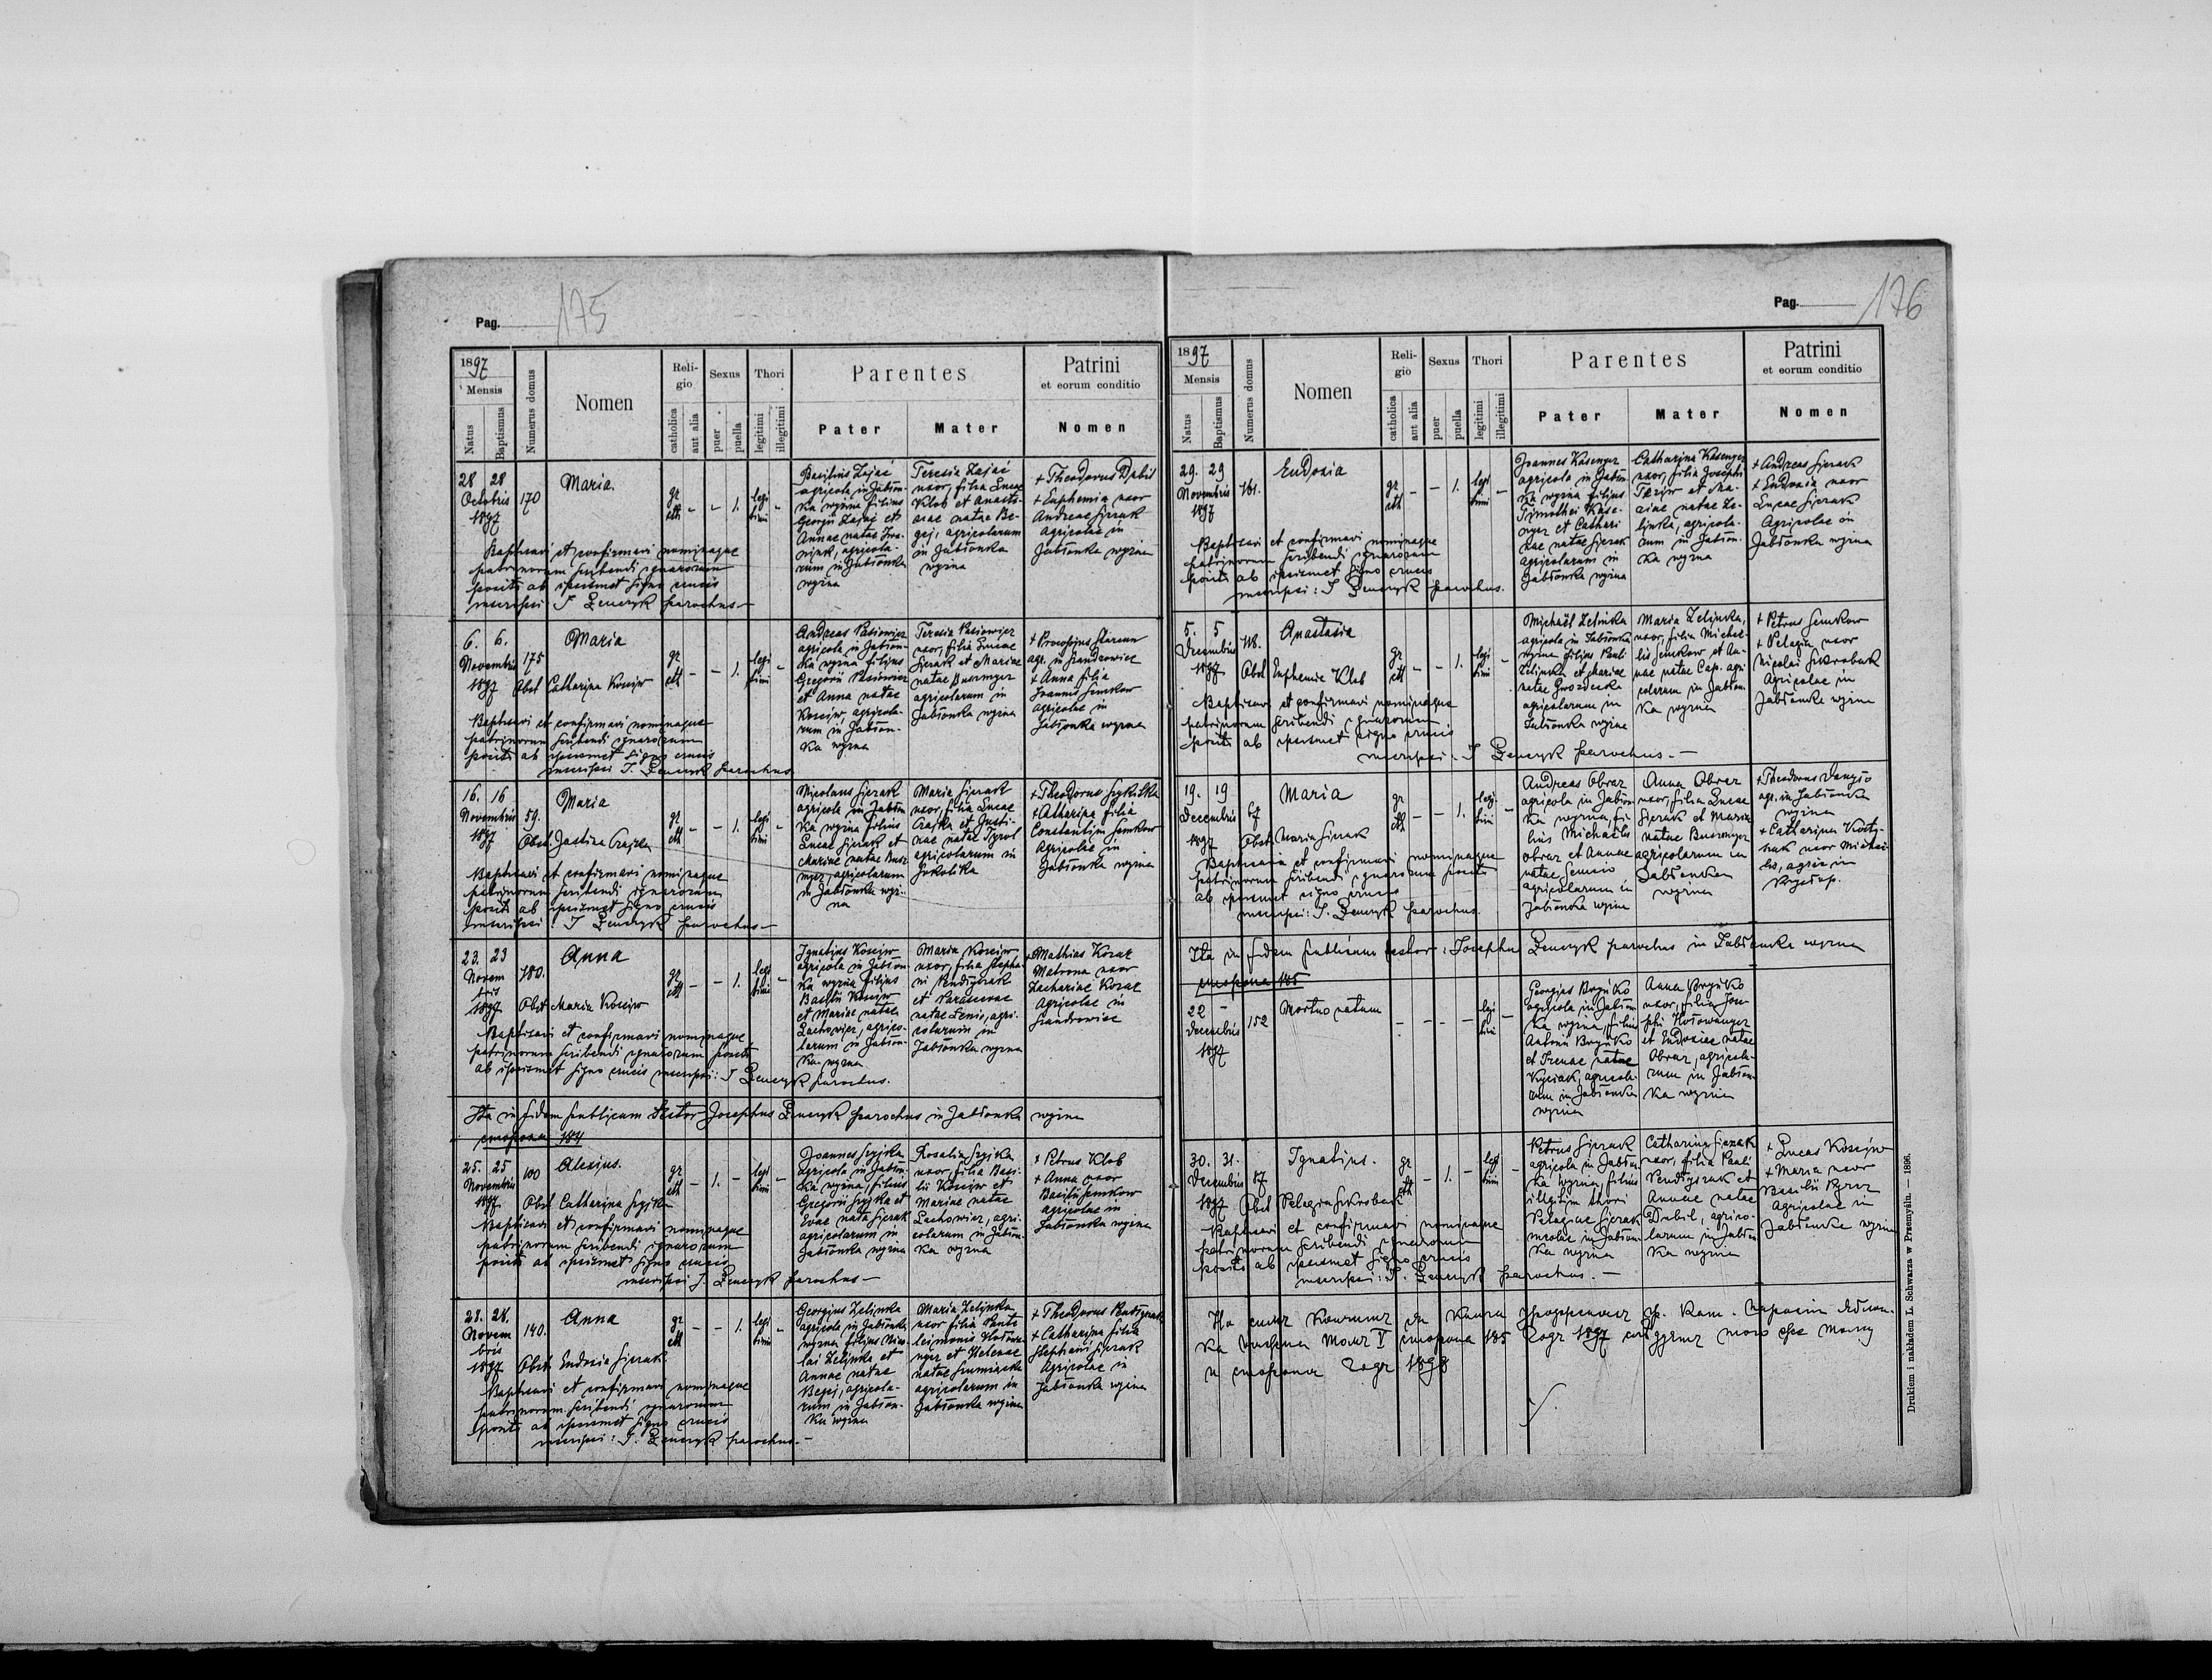 Pag. 175
1897
Mensis
Natus
Baptismus
Numerus domus
Nomen
Religio
catholica
aut alia
Sexus
puer
puella
Thori
legitimi
illegitimi
Parentes
Pater
Mater
Patrini
et eorum conditio
Nomen
28 28
Octobris
1897
170
Maria
gr
cth
- - 1.
legi
timi
-
Basilius Zając
agricola in Jabłon-
ka wyżna filius
Georgii Zając et
Annae natae
agricola-
rum in Jabłonka
wyżna
Teresia Zając
uxor, filia Lucae
Klob et Anasta-
siae natae Be-
gej, agricolarum
in Jabłonka
wyżna
+ Theodorus Dubil
+ Euphemia uxor
Andreae Sjerak
agricolae in
Jabłonka wyżna
Baptisavi et confirmavi nominaque
patrinorum scribendi ignarorum
positi ab ipsismet signo crucis
inscripsi J Lenczyk parochus-
6. 6.
Novembris
1897
175
Maria
Obst Catharina Kosejw
gr
cth
- - 1.
legi
timi
-
Andreas Pasiowicz
agricola in Jabłon-
ka wyżna filius
Gregorii Pasiowicz
et Anna natae
Kosejw, agricola-
rum in Jabłon-
ka wyżna
Teresia Pasiowicz
uxor, filia Lucae
Sjerak et Mariae
natae
agricolarum in
Jabłonka wyżna
+ Procopius
agr. in
+ Anna filia
Joannis Semkow
agricolae in
Jabłonka wyżna
Baptisavi et confirmavi nominaque
patrinorum scribendi ignarorum
positi ab ipsismet signo crucis
inscripsi J. Lenczyk parochus
16. 16
Novembris
1897
59.
Maria
Obst. Justina Czajka
gr
cth
- - 1.
legi
timi
-
Nicolaus Sjerak
agricola in Jabłon
ka wyżna filius
Lucae Sjerak et
Mariae natae
agricolarum
in Jabłonka wyż-
na
Maria Sjerak
uxor, filia Lucae
Czajka et Justi-
nae natae Tyrol
agricolarum in
Jakolika
+ Theodorus
+ Catharina filia
Constantini Semkow
Agricolae in
Jabłonka wyżna
Baptisavi et confirmavi nominaque
patrinorum scribendi ignarorum
positi ab ipsismet signo crucis
inscripsi J Lenczyk parochus-
23. 23
Novem
bris
1897
180.
Anna
Obst Maria Kosejw
gr
cth
- - 1.
legi
timi
-
Ignatius Kosejw
agricola in Jabłon
ka wyżna filius
Basilii Kosejw
et Mariae natae
Lachowicz, agrico-
larum in Jabłon-
ka wyżna
Maria Kosejw
uxor, filia Stepha-
ni Pendyrak
et Parascevae
natae Senio, agri-
colarum in
Jabłonka wyżna
+ Mathias Kozak
Matrona uxor
Zachariae Kozak
Agricolae in
Baptisavi et confirmavi nominaque
patrinorum scribendi ignarorum positi
ab ipsismet signo crucis inscripsi: J Lenczyk parochus.
Ita in fidem publicam testor Josephus Lenczyk parochus in Jabłonka wyżna
сторона 184
25. 25
Novembris
1897
100
Alexius.
Obst Catharina Szyjka
gr
cth
- 1. -
legi
timi
-
Joannes Szyjka
agricola in Jabłon-
ka wyżna, filius
Gregorii Szyjka et
Evae nata Sjerak
agricolarum in
Jabłonka wyżna
Rosalia Szyjka
uxor, filia Basi-
lii Kosejw et
Mariae natae
Lachowicz, agri-
colarum in Jabłon-
ka wyżna
+ Petrus Klob
+ Anna uxor
Basilii Semkow
agricolae in
Jabłonka wyżna
Baptisavi et confirmavi nominaque
patrinorum scribendi ignarorum
positi ab ipsismet signo crucis
inscripsi J. Lenczyk parochus-
28. 28.
Novem
bris
1897
140.
Anna
Obst. Eudoxia Sjerak
gr
cth
- - 1.
legi
timi
-
Georgius Zelinka
agricola in Jabłonka
wyżna filius Nico-
lai Zelinka et
Annae natae
Begej, agricola-
rum in Jabłon-
ka wyżna
Maria Zelinka
uxor filia Pante
leimonis Hołowa
nger et Helenae
natae
agricolarum in
Jabłonka wyżna
+ Theodorus Pendyrak
+ Catharina filia
Stephani Sjerak
Agricolae in
Jabłonka wyżna
Baptisavi et confirmavi nominaque
patrinorum scribendi ignarorum
positi ab ipsismet signo crucis
inscripsi: J. Lenczyk parochus.-
Pag. 176
1897
Mensis
Natus
Baptismus
Numerus domus
Nomen
Religio
catholica
aut alia
Sexus
puer
puella
Thori
legitimi
illegitimi
Parentes
Pater
Mater
Patrini
et eorum conditio
Nomen
29. 29
Novembris
1897
161.
Eudoxia
gr
cth
- - 1.
legi
timi
-
Joannes Kasenger
agricola in Jabłon
ka wyżna filius
Timothei Kase-
nger et Cathari
nae natae Sjerak
agricolarum in
Jabłonka wyżna
Catharina Kasenger
uxor, filia Josephi
et Ma-
riae natae Ze-
linka, agricola-
rum in Jabłon-
ka wyżna
+ Andreas Sjerak
+ Eudoxia uxor
Lucae Sjerak
Agricolae in
Jabłonka wyżna
Baptisavi et confirmavi nominaque
patrinorum scribendi ignarorum
positi ab ipsismet signo crucis
inscripsi: J Lenczyk parochus.
5. 5
Decembris
1897
118.
Anastasia
Obst Euphemia Klob
gr
cth
- - 1.
legi
timi
-
Michaël Zelinka
agricola in Jabłonka
wyżna filius Pauli
Zelinka et Mariae
natae Gwozdecka
agricolarum in
Jabłonka wyżna
Maria Zelinka,
uxor, filia Michae-
lis Semkow et An-
nae natae Cap. agri
colarum in Jabłon-
ka wyżna
+ Petrus Semkow
+ Pelagia uxor
Nicolai Sikrobak
Agricolae in
Jabłonka wyżna
Baptisavi et confirmavi nominaque
patrinorum scribendi ignarorum
positi ab ipsismet signo crucis
inscripsi. J Lenczyk parochus.-
19. 19
Decembris
1897
67
Maria
Obst Maria Sjerak
gr
cth
- - 1.
legi
timi
-
Andreas Obraz
agricola in Jabłon
ka wyżna, fi-
lius Michaelis
Obraz et Annae
natae Senio
agricolarum in
Jabłonka wyżna
Anna Obraz
uxor, filia Lucae
Sjerak et Maria
natae
agricolarum in
Jabłonka
wyżna
+ Theodorus
agr. in Jabłonka
wyżna
+ Catharina
uxor Michae
lis, agric in
Baptisavi et confirmavi nominaque
patrinorum scribendi ignarorum positi
ab ipsismet signo crucis
inscripsi: J. Lenczyk parochus.
Ita in fidem publicam testor: Josephus Lenczyk parochus in Jabłonka wyżna
сторона 185
22 -
Decembris
1897
152
Mortuo natum
- - - -
legi
timi
-
Georgius Bryńko
agricola in Jabłon
ka wyżna, filius
Antonii Bryńko
et Irenae natae
Kyciak, agricola-
rum in Jabłonka
wyżna
Anna Bryńko
uxor, filia Jose-
phi Hołowanger
et Eudoxiae natae
Obraz, agricola-
rum in Jabłon-
ka wyżna
30. 31.
Decembris
1897
87
Ignatius.
Obst Pelagia Sikrobak
gr
cth
- 1. -
legi
timi
-
Petrus Sjerak
agricola in Jabłon
ka wyżna, filius
illegitim thori
Pelagiae Sjerak
incolae in Jabłon-
ka wyżna
Catharina Sjerak
uxor, filia Pauli
Pendyrak et
Annae natae
Dubil, agrico-
larum in Jabłon
ka wyżna
+ Lucas Kosejw
+ Maria uxor
Basilii
Agricolae in
Jabłonka wyżna
Baptisavi et confirmavi nominaque
patrinorum scribendi ignarorum
positi ab ipsismet signo crucis
inscripsi: J. Lenczyk parochus.-
На сим Кончит ся Книга гр. кат.
том I сторона 185 1897
и сторона 1898
Drukiem i nakładem L. Schwarza w Przemyślu. — 1896.